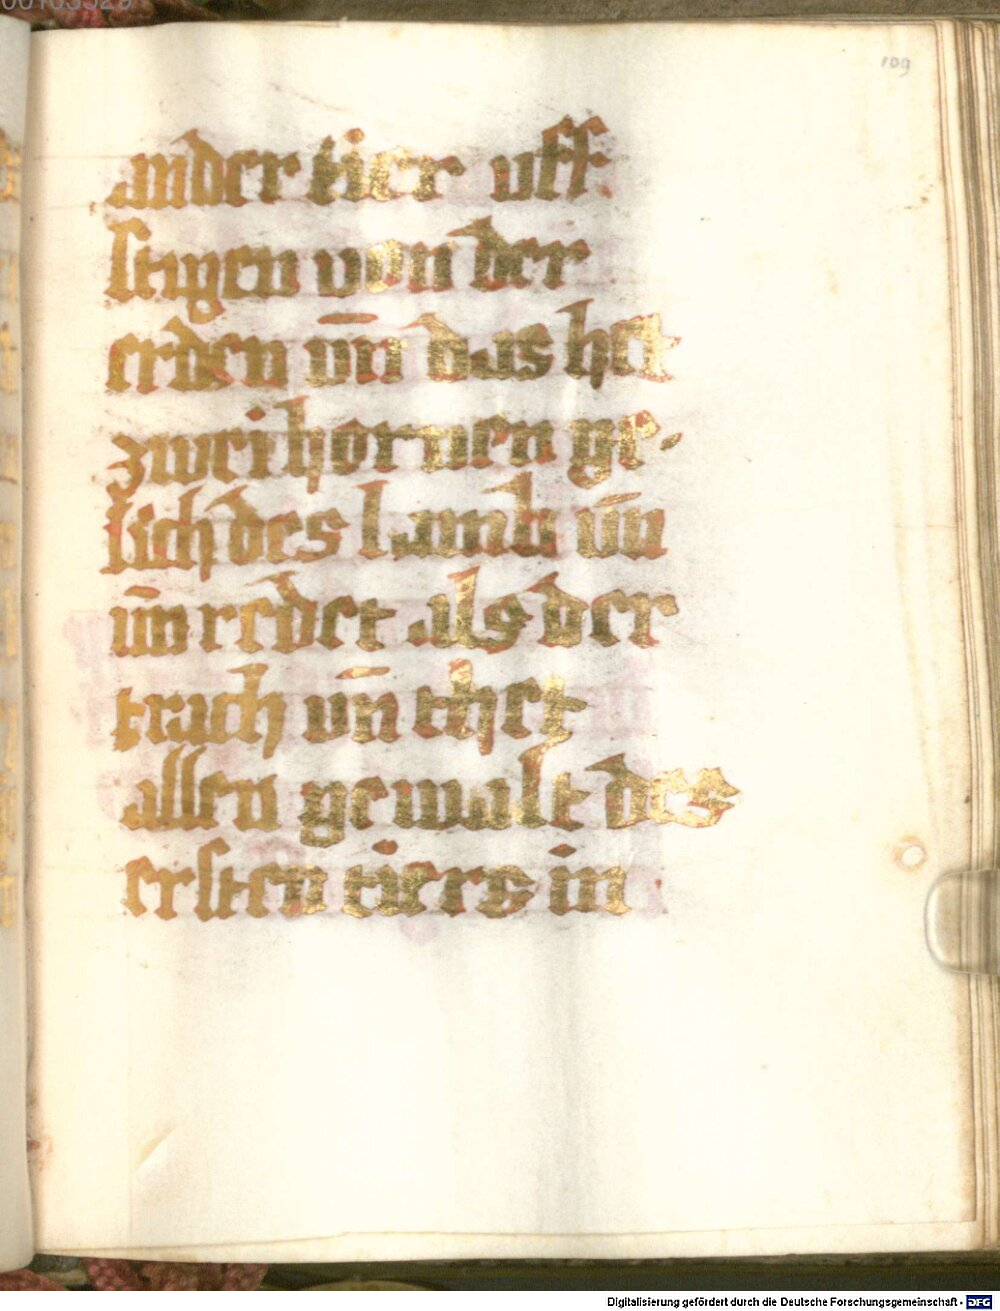 109
ander tier uff
stigen von der
erden vn̄ das het
zwei hornen ge-
lich des lamb un̄
un̄ redet als der
trach vn̄ thet
allen gewalt des
ersten tiers in
Digitalisierung gefördert durch die Deutsche Forschungsgemeinschaft - DFG